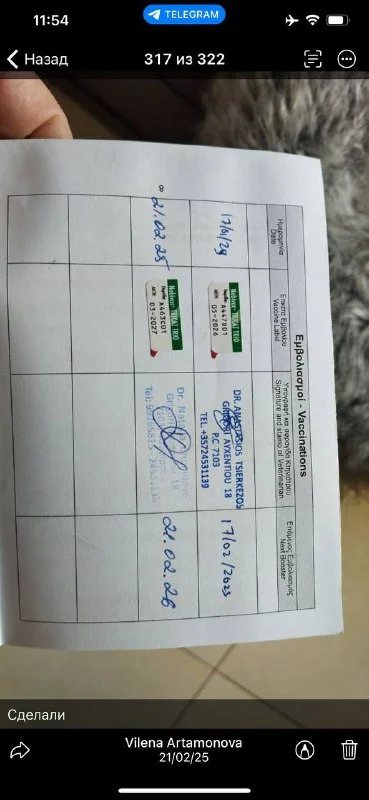 11:54
TELEGRAM
Назад
317 из 322
Εμβολιασμοί - Vaccinations
Ημερομηνία
Date
Ετικέτα Εμβολίου
Vaccine Label
Υπογραφή και σφραγίδα Κτηνιάτρου
Signature and stamp of Veterinarian
Επόμενος Εμβολιασμός
Next Booster
Nobivac TRICAT TRIO
A447B01
05-2026
DR. ANASTASIOS TSIERKEZOS
GRIGORI AYXENTIOU 18
P.C 7103
TEL +35724531139
17/02/2025
21.02.25
Nobivac TRICAT TRIO
A463C01
03-2027
Dr.
18
Tel:
24531139
21.02.26
Сделали
Vilena Artamonova
21/02/25